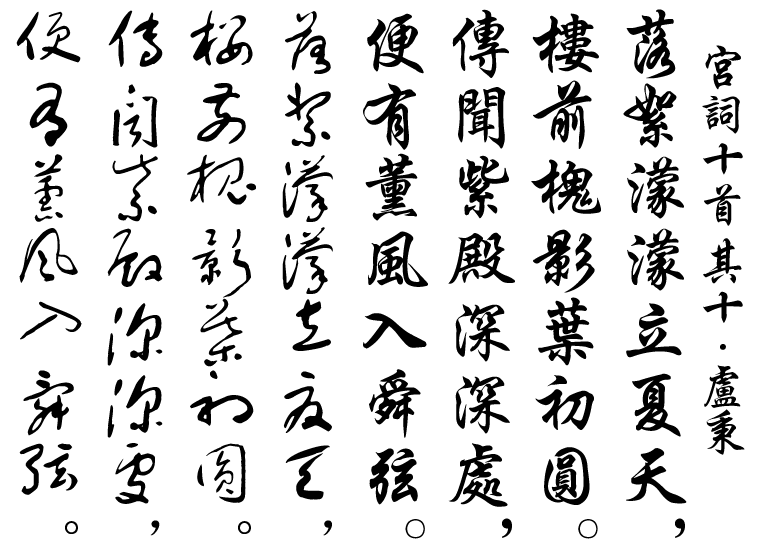 宮詞十首其十．盧秉
落絮濛濛立夏天，
樓前槐影葉初圓。
傳聞紫殿深深處，
便有薰風入舜弦。
落絮濛濛立夏天，
樓前槐影葉初圓。
傳聞紫殿深深處，
便有薰風入舜弦。